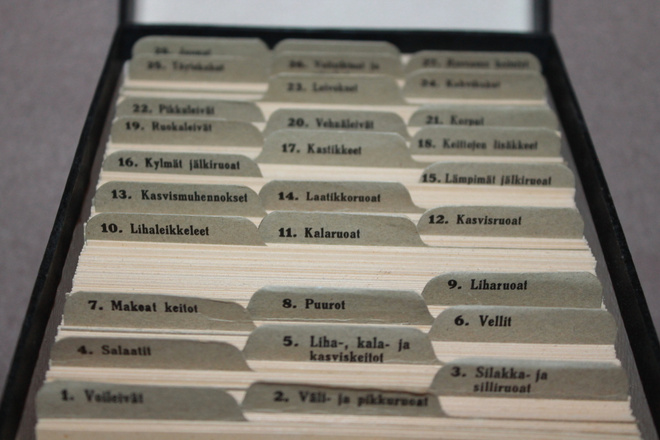 25. Täytekakut
24. Kahvikakut
23. Leivokset
22. Pikkuleivät
20. Vehnäleivät
21. Korput
19. Ruokaleivät
17. Kastikkeet
18. Keittojen lisäkkeet
16. Kylmät jälkiruoat
15. Lämpimät jälkiruoat
13. Kasvismuhennokset
14. Laatikkoruoat
12. Kasvisruoat
10. Lihaleikkeleet
11. Kalaruoat
9. Liharuoat
7. Makeat keitot
8. Puurot
6. Vellit
4. Salaatit
5. Liha-, kala- ja
kasviskeitot
3. Silakka- ja
silliruoat
1. Voileivät
2. Väli- ja pikkuruoat